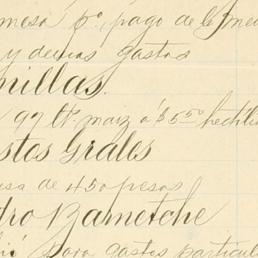 mesa pº, pago de
y demas gastos
millas.
97 lts. maiz á $5.50 hectl
stos Grales
sa de 450 pesos
dro Bametche
para gastos particul